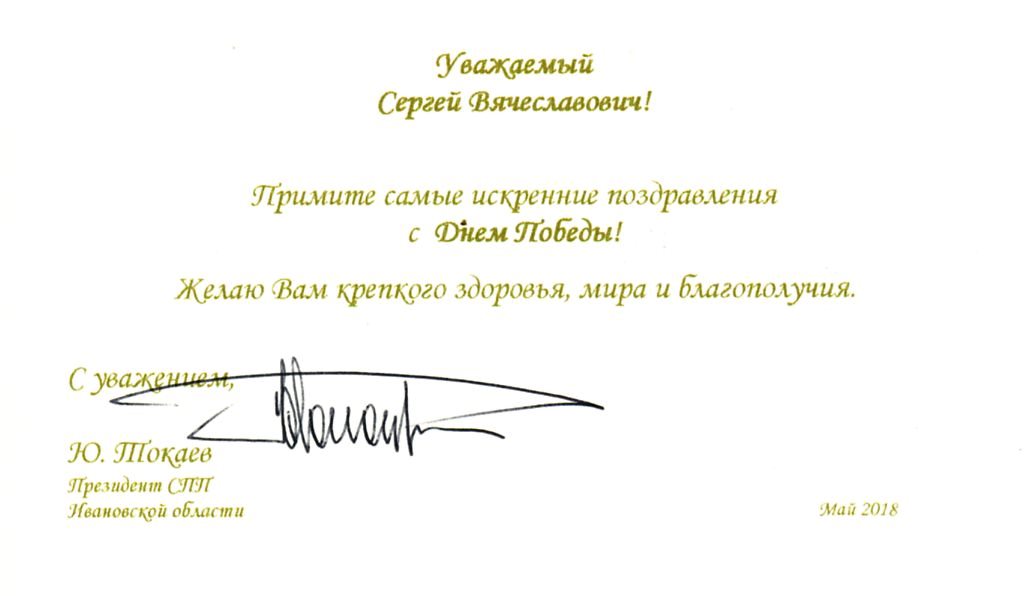 Уважаемый
Сергей Вячеславович!
Примите самые искренние поздравления
с Днем Победы!
Желаю Вам крепкого здоровья, мира и благополучия.
С уважением,
Ю. Токаев
Президент СПП
Ивановской области
Май 2018